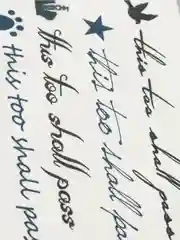 this too shall pass
this too shall pa
this too shall pass
this too shall pas